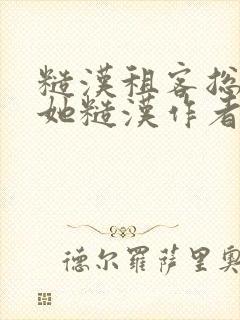 糙漢租客挖
她糙漢作者
德尔羅萨里奧